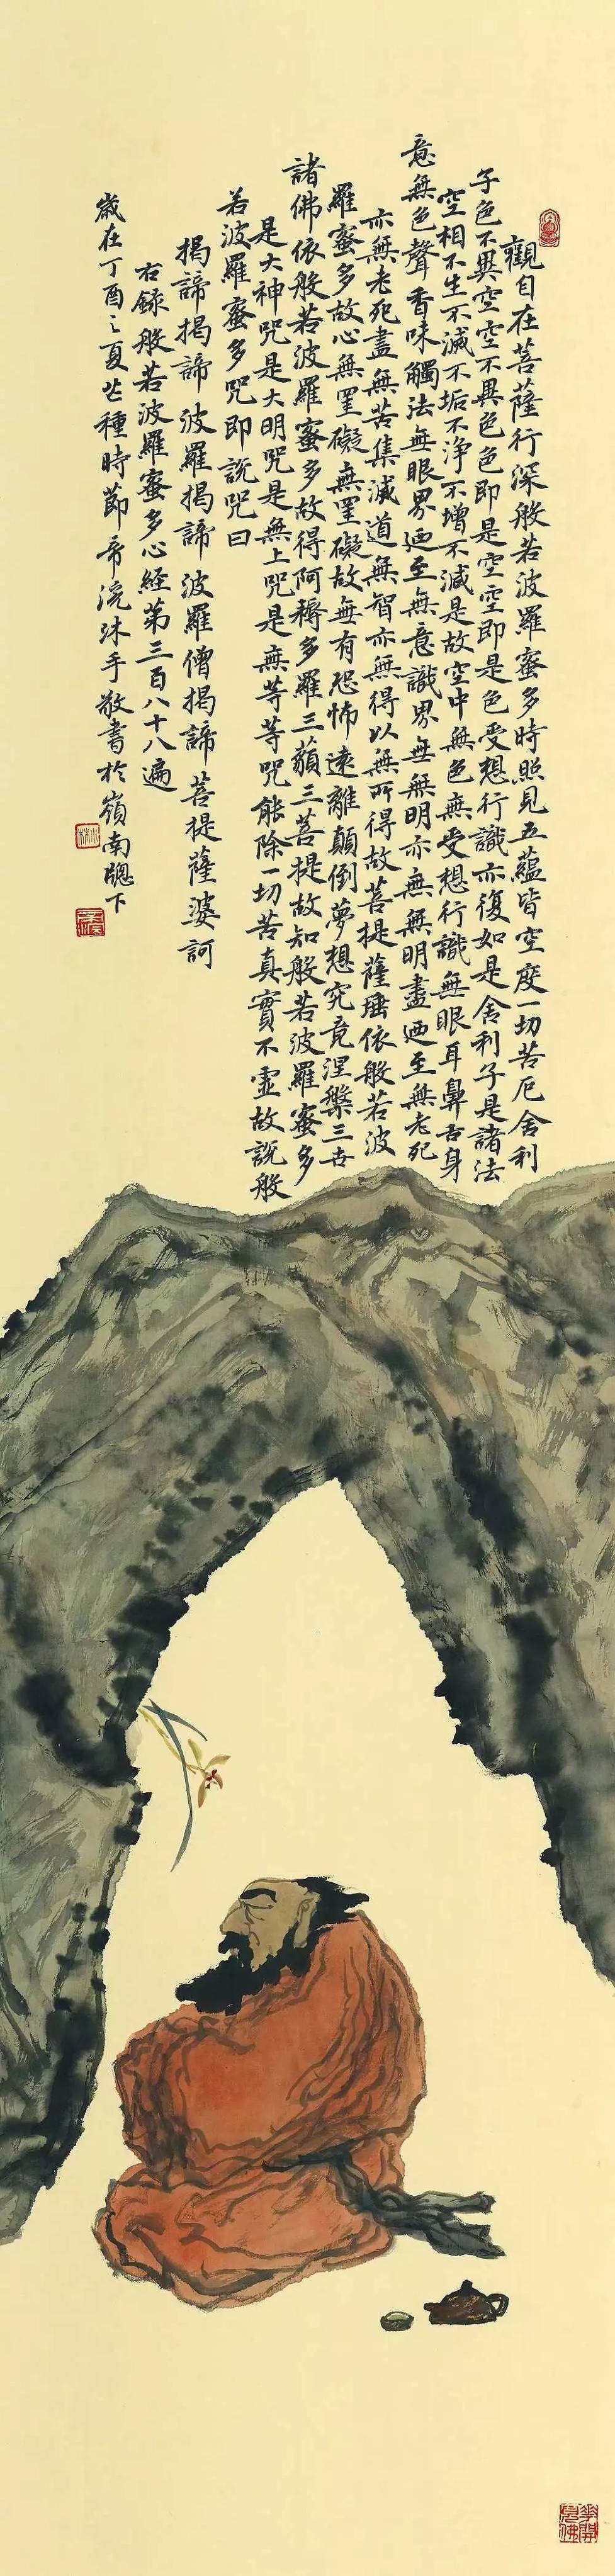 觀自在菩薩行深般若波羅蜜多時照見五蘊皆空度一切苦厄舍利
子色不異空空不異色色即是空空即是色受想行識亦復如是舍利子是諸法
空相不生不滅不垢不淨不增不減是故空中無色無受想行識無眼耳鼻舌身
意無色聲香味觸法無眼界廼至無意識界無無明亦無無明盡廼至無老死
亦無老死盡無苦集滅道無智亦無得以無所得故菩提薩埵依般若波
羅蜜多故心無罣礙無罣礙故無有恐怖遠離顛倒夢想究竟涅槃三世
諸佛依般若波羅蜜多故得阿耨多羅三藐三菩提故知般若波羅蜜多
是大神咒是大明咒是無上咒是無等等咒能除一切苦真實不虛故說般
若波羅蜜多咒即說咒曰
揭諦揭諦 波羅揭諦 波羅僧揭諦 菩提薩婆訶
右錄般若波羅蜜多心經第三百八十八遍
歲在丁酉之夏芒種時節帝浣沐手敬書於嶺南牕下
華開見佛